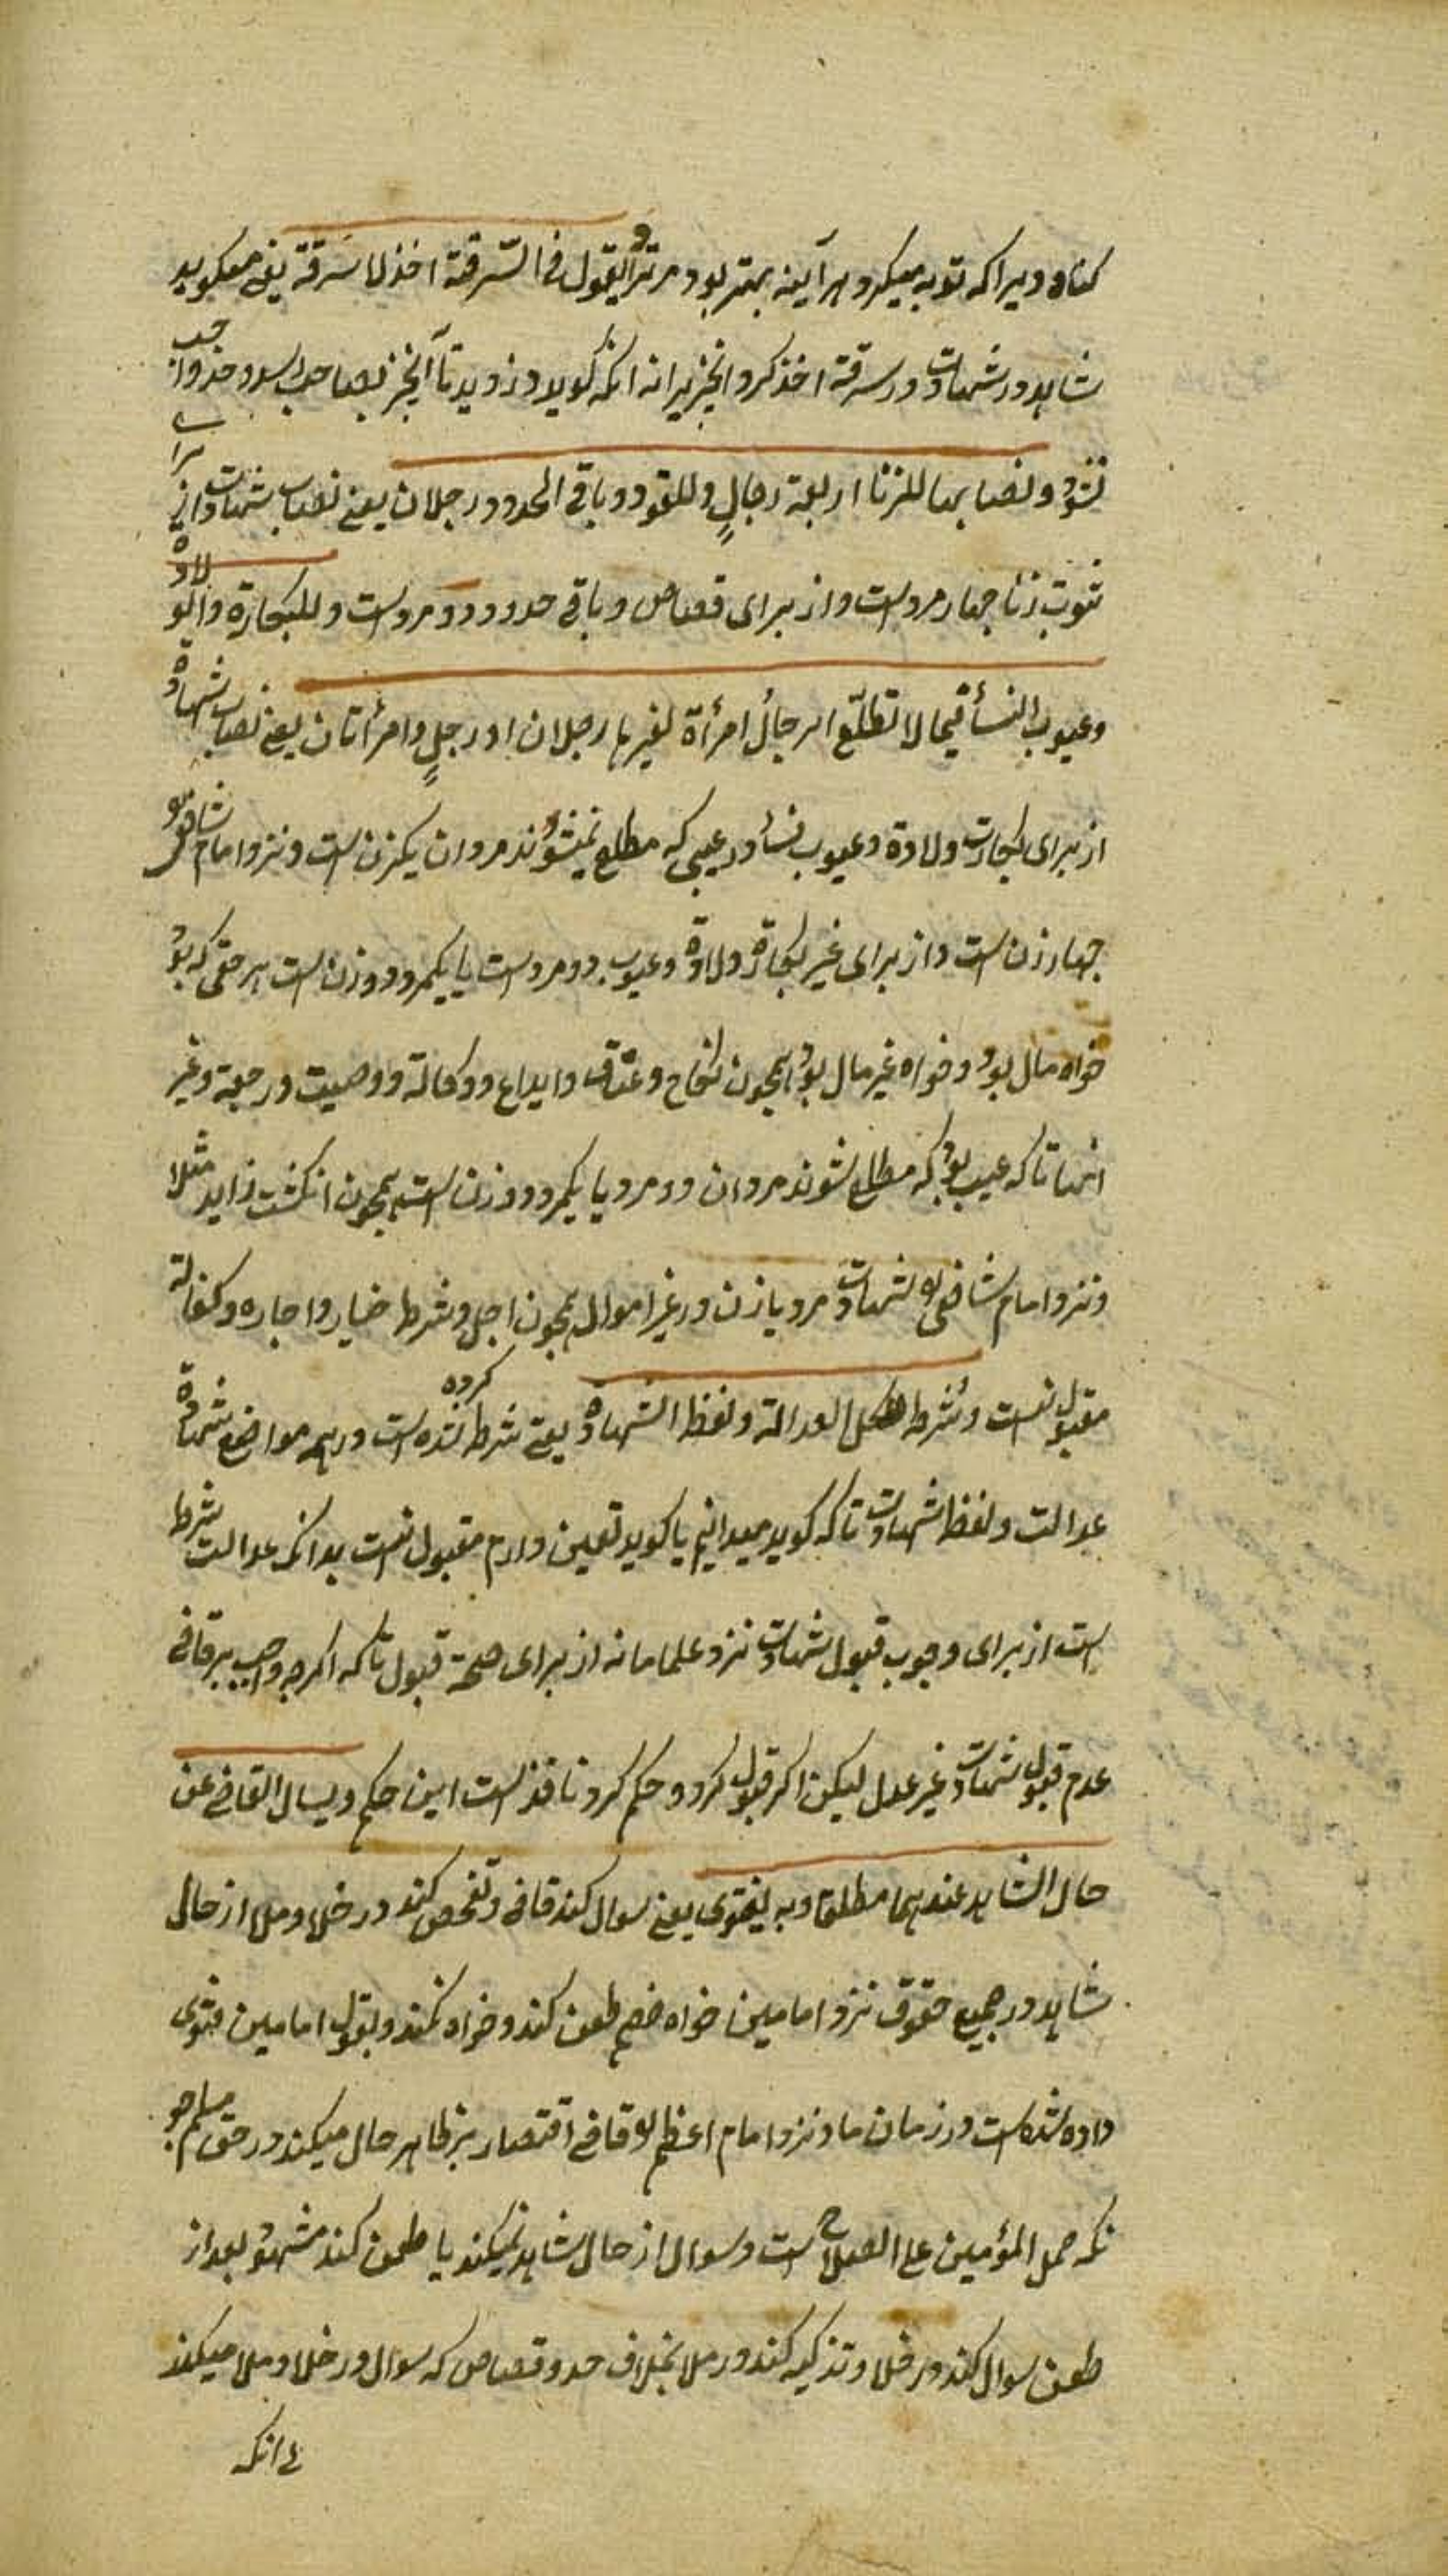 کناه ویرا که توبه میکرد هر آینه بهتر بود مر ترا و یقول فی السّرقة اخذ لا سَرقة یعنی میکوید
شاهد در شهادت در سرقة اخذ کرد انچیز برا نه انکه کوید دزدید تا آنچیز بصاحب رسد و حد واجب
نشود و نصابها للزنا اربعة رجالٍ وللقود و باقی الحدود رجلان یعنی نصاب شهادت از برای
ثبوت زنا چهار مرد است و از برای قصاص و باقی حدود دو مرد است و للبکارة والولادة
وعیوب النسأ فیما لا تطلّع الرجالُ امرأة لغیرها رجلان او رجلٍ وامرأتان یعنی نصاب شهادة
از برای بکارت ولادة و عیوب نسأ در عیبی که مطلع نمیشوند مردان یکزن است و نزد امام شافعی
چهار زن است و از برای غیر بکارة ولادة وعیوب دو مرد است یا یکمرد و دو زن است هر حقی که بود
خواه مال بود و خواه غیر مال بود همچون نکاح و عتاق و ایداع و وکالة و وصیت و رجعة و غیر
انها تا که عیب بود که مطلع شوند مردان دو مرد یا یکمرد و دو زن است همچون انکشت زاید مثلا
و نزد امام شافعی شهادت مرد با زن در غیر اموال همچون اجل و شرط خیار و اجاره و کفالة
مقبول نیست و شُرط للکل العدالة ولفظ الشهادة یعنی شرط کرده شده است در همه مواضع شهادة
عدالت و لفظ شهادت تا که کوید میدانیم یا کوید یقین دارم مقبول نیست بدانکه عدالت شرط
است از برای وجوب قبول شهادت نزد علما ما نه از برای صحة قبول تا که اکرچه واجب بر قاضی
عدم قبول شهادت غیر عدل لیکن اکر قبول کرد و حکم کرد نافذ است این حکم و یسال القاضی عن
حال الشاهد عندهما مطلقا وبه یفتوی یعنی سوال کند قاضی و تفحص کند در خلا و ملا از حال
شاهد در جمیع حقوق نزد امامین خواه خصم طعن کند و خواه نکند و بقول امامین فتوی
داده شده است در زمان ما و نزد امام اعظم قاضی اقتصار بر ظاهر حال میکند در حق مسلم
نکه حمل المؤمنین علی الصلاح است و سوال از حال شاهد نمیکند یا طعن کند مشهود بعد از
طعن سوال کند در خلا و تزکیه کند در ملا بخلاف حد و قصاص که سوال در خلا و ملا میکند
انکه